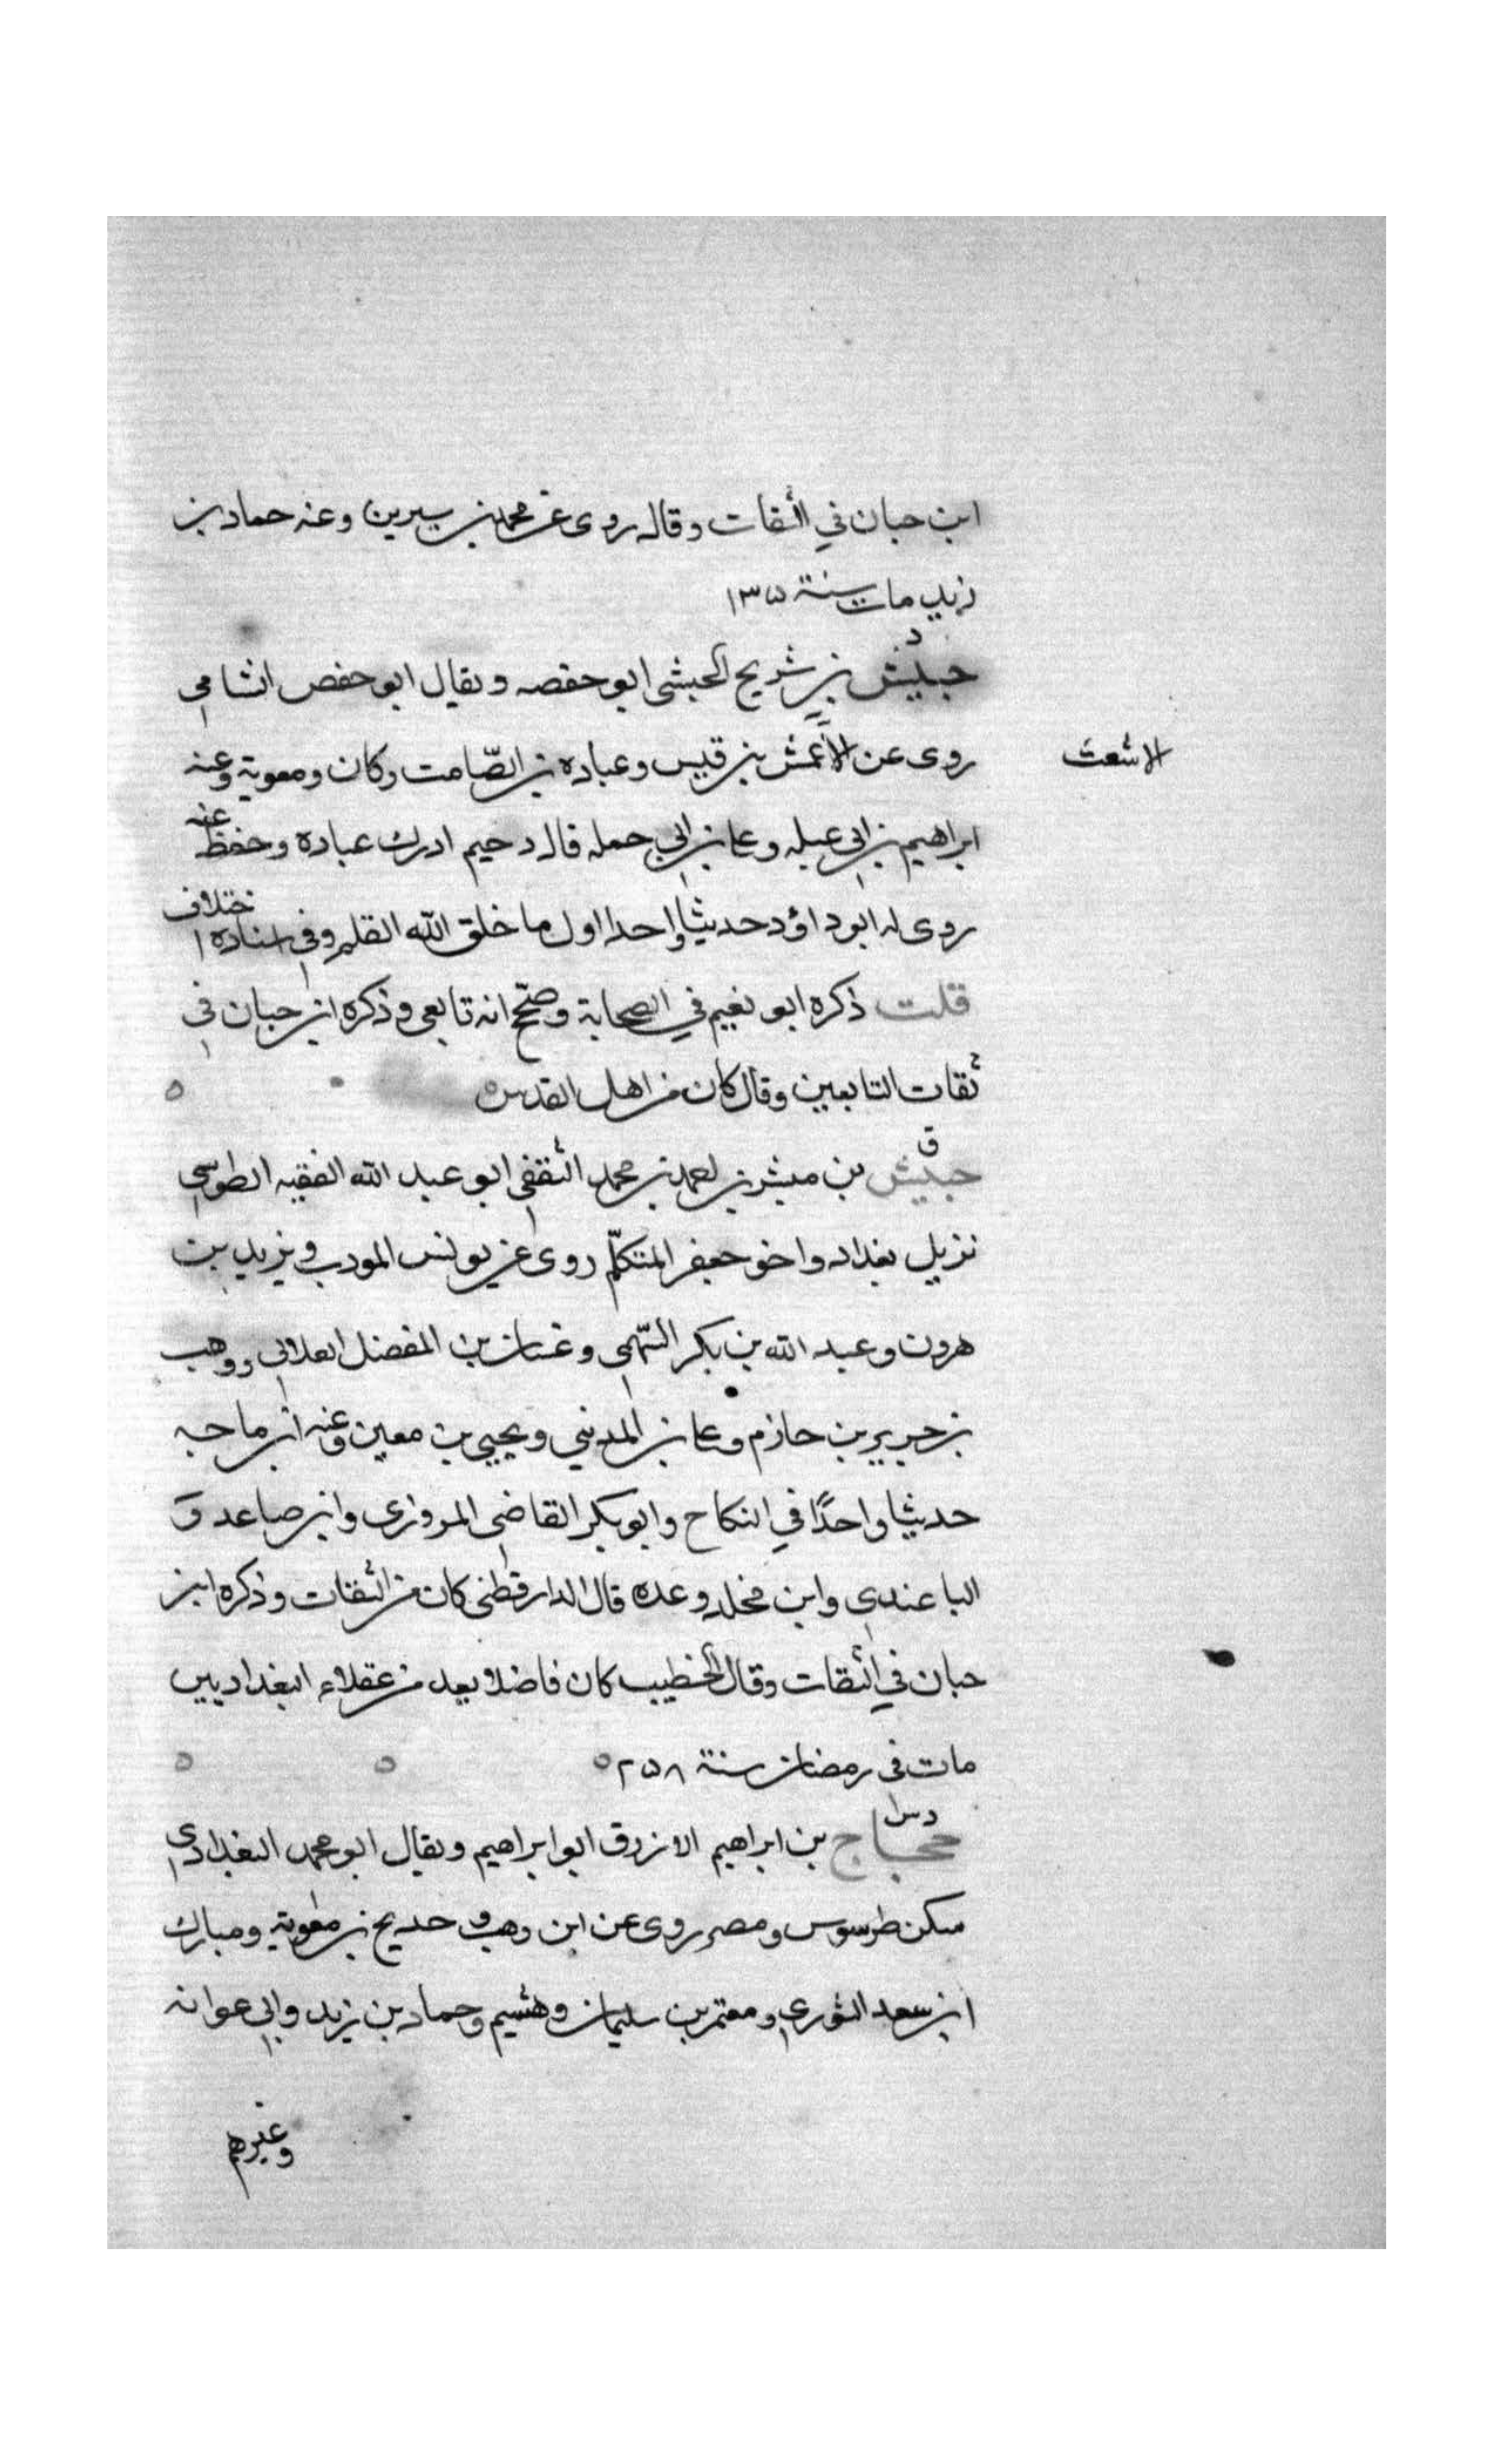 ابن حبان في الثقات وقال روى عن محمد بن سيرين وعنه حماد بن
زيد مات سنة ١٣٥
د
حبيش بن شريح الحبشى ابو حفصه ويقال ابو حفص الشامي
روى عن الأعمش بن قيس وعباده بن الصّامت وكان ومعوية وعنه
الاشعث
ابراهيم بن ابي عبله وعلي بن ابي حمله قال دحيم ادرك عبادة وحفظ عنه
روى له ابو داؤد حديثا واحدا اول ما خلق الله القلم وفي اسناده اختلاف
قلت ذكره ابو نعيم في الصحابة وصحّح انه تابعي وذكره ابن حبان في
ثقات التابعين وقال كان من اهل القدس
ق
حبيش بن مبشر بن احمد بن محمد الثقفي ابو عبد الله الفقيه الطوسي
نزيل بغداد واخو جعفر المتكلّم روى عن يونس المودب ويزيد بن
هرون وعبد الله بن بكر السّهمي وغسان بن المفضل العلابي ووهب
بن جرير بن حازم وعلي بن المديني ويحيي بن معين وعنه ابن ماجه
حديثا واحدًا في النكاح وابو بكر القاضي المروزى وابن صاعد و
الباغندي وابن مخلد وعده قال الدارقطنى كان من الثقات وذكره ابن
حبان في الثقات وقال الخطيب كان فاضلا يعد من عقلاء البغداديين
مات فى رمضان سنة ٢٥٨
د س
حجاج بن ابراهيم الازرق ابو ابراهيم ويقال ابو محمد البغدادي
سكن طرسوس ومصر روى عن ابن وهب وحديج بن معوية ومبارك
ابن سعد الثوري ومعتمر بن سليمان وهشيم وحماد بن زيد وابي عوانه
وغيرهم